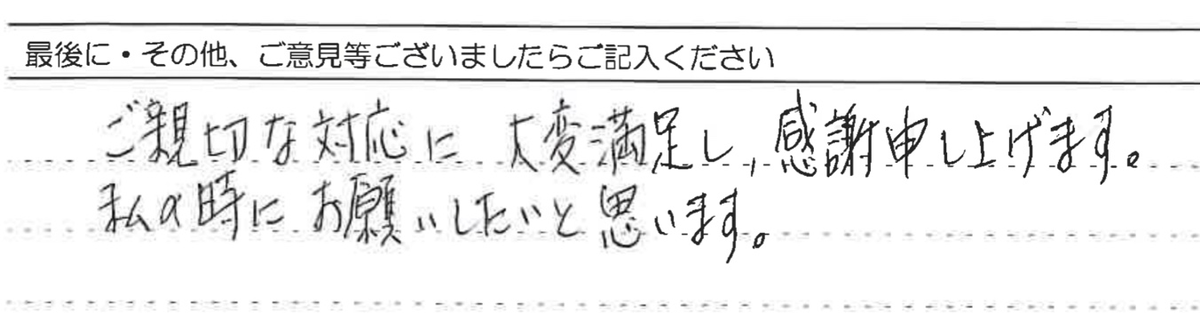 最後に・その他、ご意見等ございましたらご記入ください
ご親切な対応に 大変満足し、感謝申し上げます。
私の時にお願いしたいと思います。